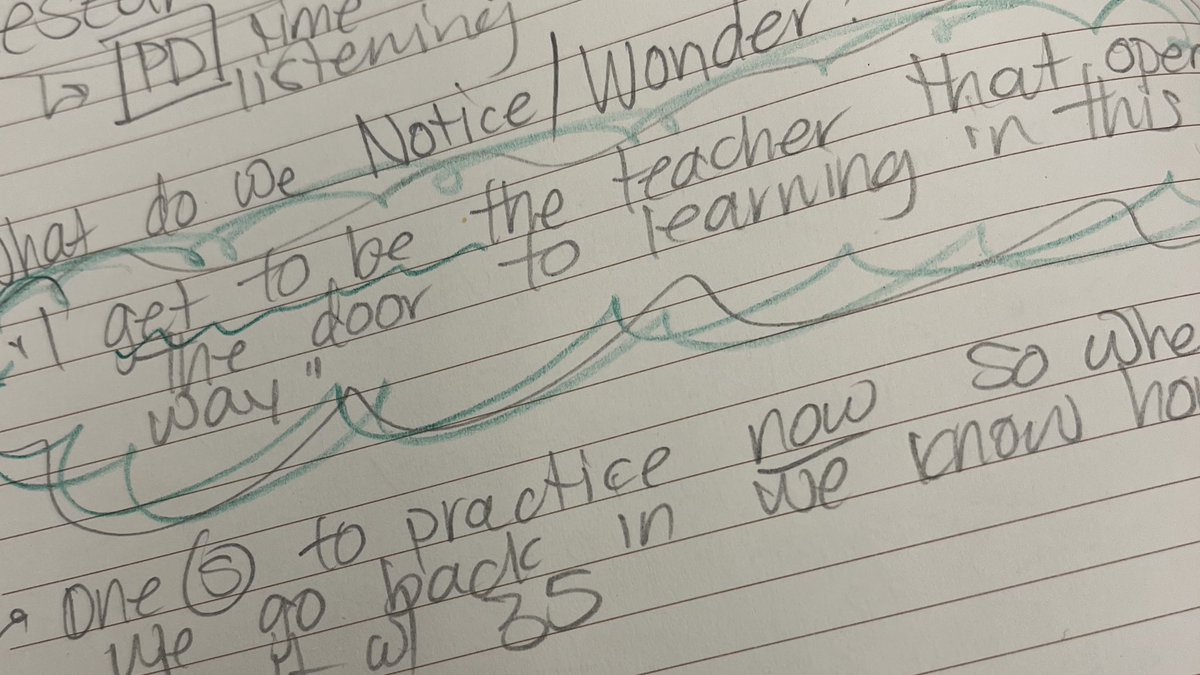 ↳ [PD] time
listening
What do we Notice/Wonder?
"I get to be the teacher that open
the door to learning in this
way"
• One (S) to practice now so whe
we go back in we know how
w/ 35